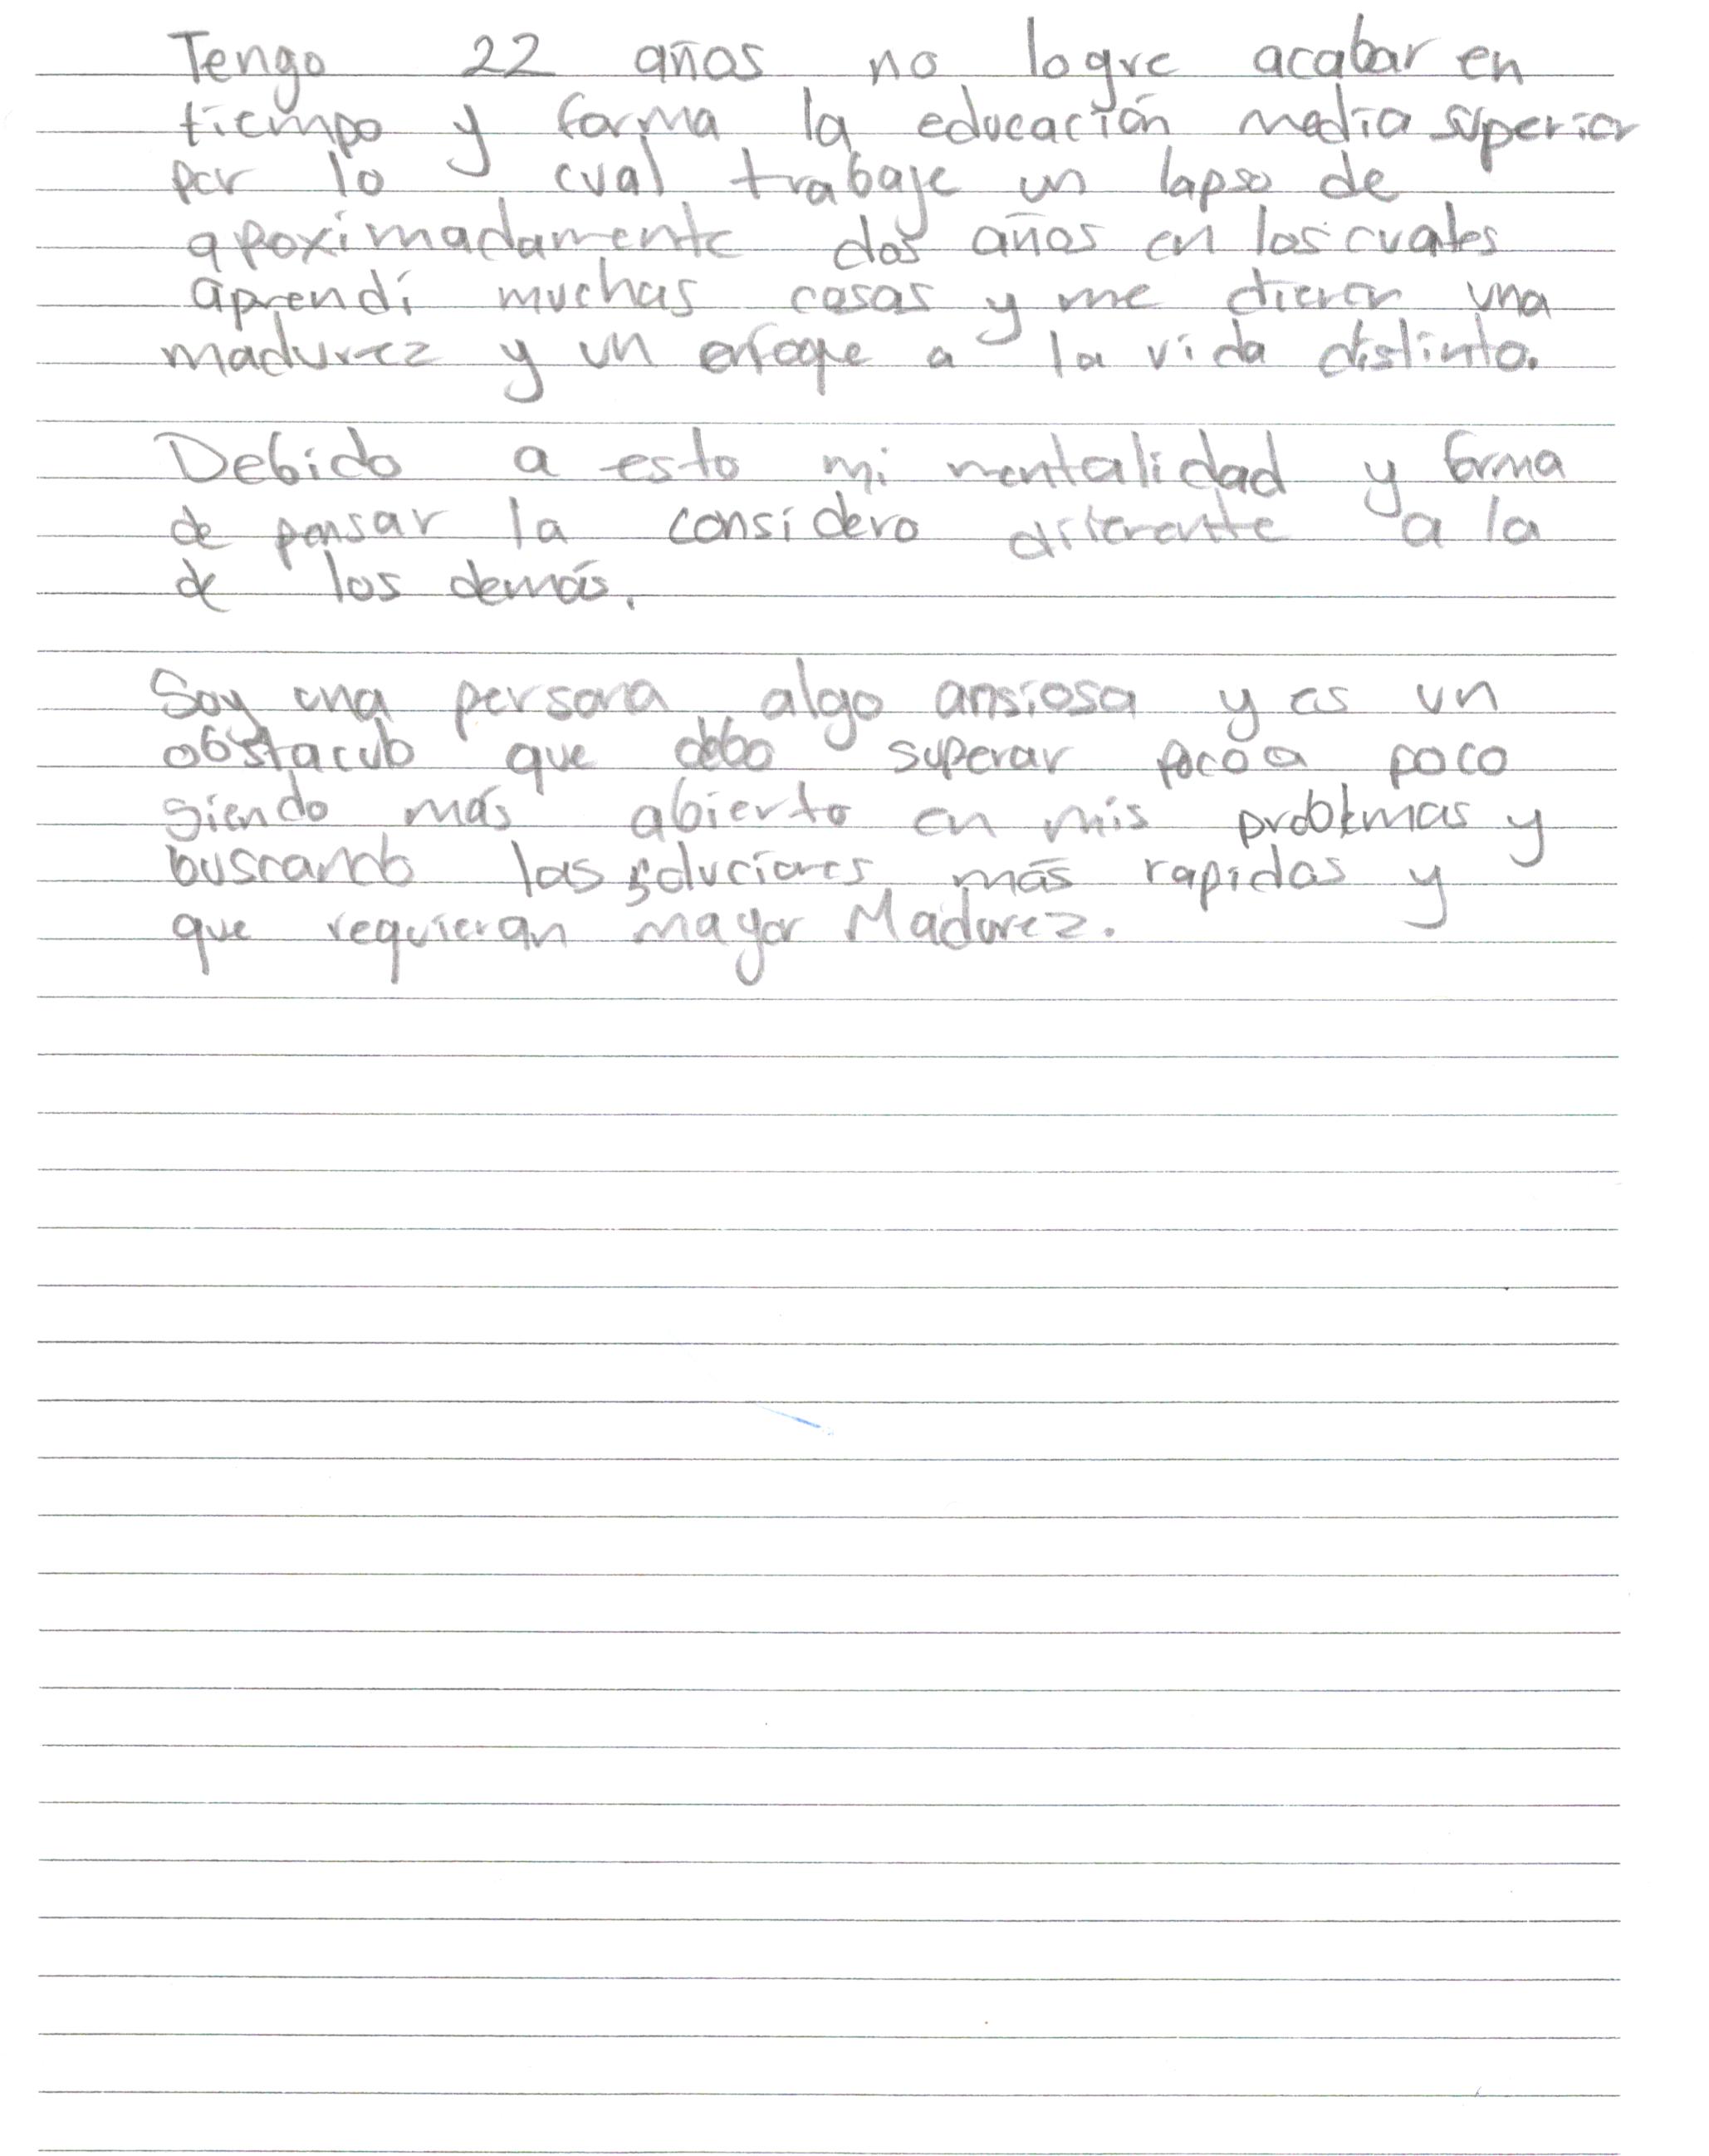 Tengo 22 años no logre acabar en
tiempo y forma la educación media superior
por lo cual trabaje un lapso de
apoximadamente dos años en los cuales
aprendí muchas cosas y me dieron una
madurez y un enfoqe a la vida distinto.
Debido a esto mi mentalidad y forma
de pensar la considero diferente a la
de los demás.
Soy una persona algo ansiosa y es un
obstaculo que debo superar poco a poco
siendo más abierto en mis problemas y
buscando las soluciones más rapidas y
que requieran mayor Madurez.